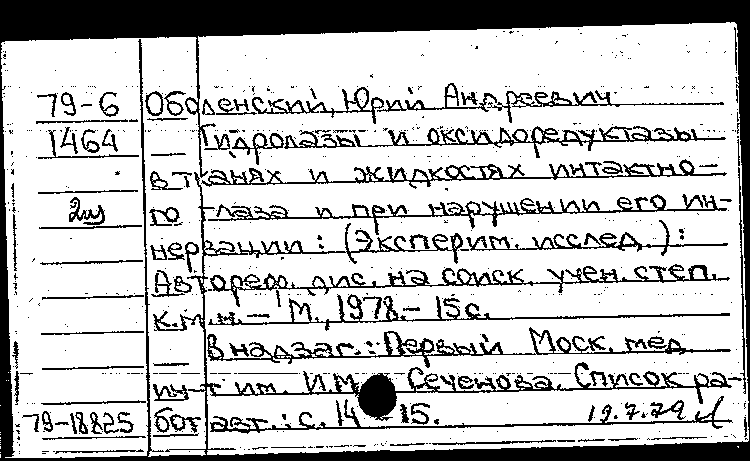 79-6 Оболенский, Юрий Андреевич.
1464 Гидролазы и оксидоредуктазы
в тканях и жидкостях интактно-
2из го глаза и при нарушении его ин-
нервации: (Эксперим. исслед.):
Автореф. дис. на соиск. учен. степ.
к.м.н. - М., 1978. - 15 с.
В надзаг.: Первый Моск. мед.
ин-т им. И.М. Сеченова. Список ра-
79-18825 бот авт.: с. 14-15. 19.7.79